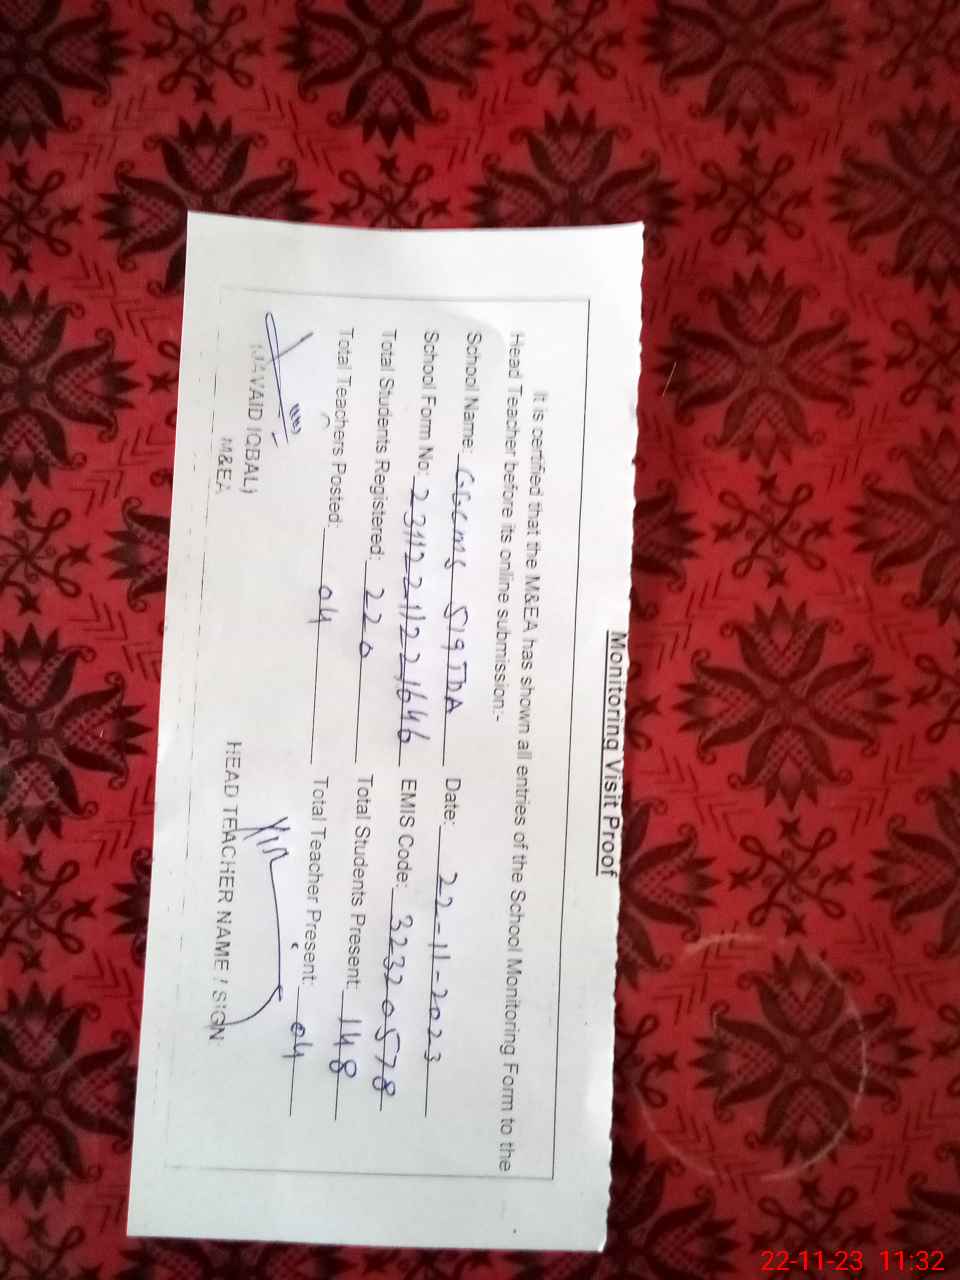 Monitoring Visit Proof
It is certified that the M&EA has shown all entries of the School Monitoring Form to the
Head Teacher before its online submission:-
School Name: GGCMS 519 TDA Date: 22-11-2023
School Form No: 23112211221646 EMIS Code: 32320578
Total Students Registered: 220 Total Students Present: 148
Total Teachers Posted: 04 Total Teacher Present: 04
(JAVAID IQBAL)
M&EA
HEAD TEACHER NAME / SIGN:
22-11-23 11:32